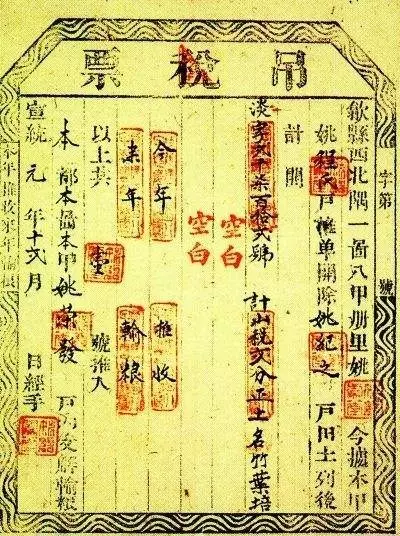 吊稅票
字第 號
歙縣西北隅一啚八甲册里姚 今據本甲
姚程氏戶推单開除姚紀之 戶田土列後
計開
淡字弍千柒百拾弍號 計山稅弍分正土名竹葉培
空白
空白
今年 推收
来年 輸粮
以上共壹 號推入
本都本啚本甲姚荣發 戶
宣統元年十弍月 日經手
本年推收來年輸粮